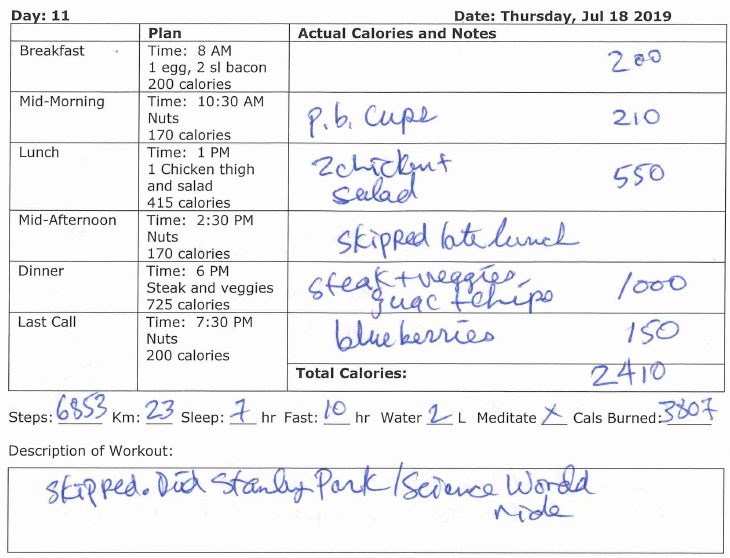 Day: 11 Date: Thursday, Jul 18 2019
Plan Actual Calories and Notes
Breakfast Time: 8 AM
1 egg, 2 sl bacon 200
200 calories
Mid-Morning Time: 10:30 AM
Nuts p.b. cups 210
170 calories
Lunch Time: 1 PM
1 Chicken thigh 2 chicken + 550
and salad salad
415 calories
Mid-Afternoon Time: 2:30 PM
Nuts skipped late lunch
170 calories
Dinner Time: 6 PM
Steak and veggies steak + veggies, 1000
725 calories guac + chips
Last Call Time: 7:30 PM
Nuts blueberries 150
200 calories
Total Calories: 2410
Steps: 6853 Km: 23 Sleep: 7 hr Fast: 10 hr Water 2 L Meditate X Cals Burned: 3807
Description of Workout:
skipped. Did Stanly Park/Science World
ride